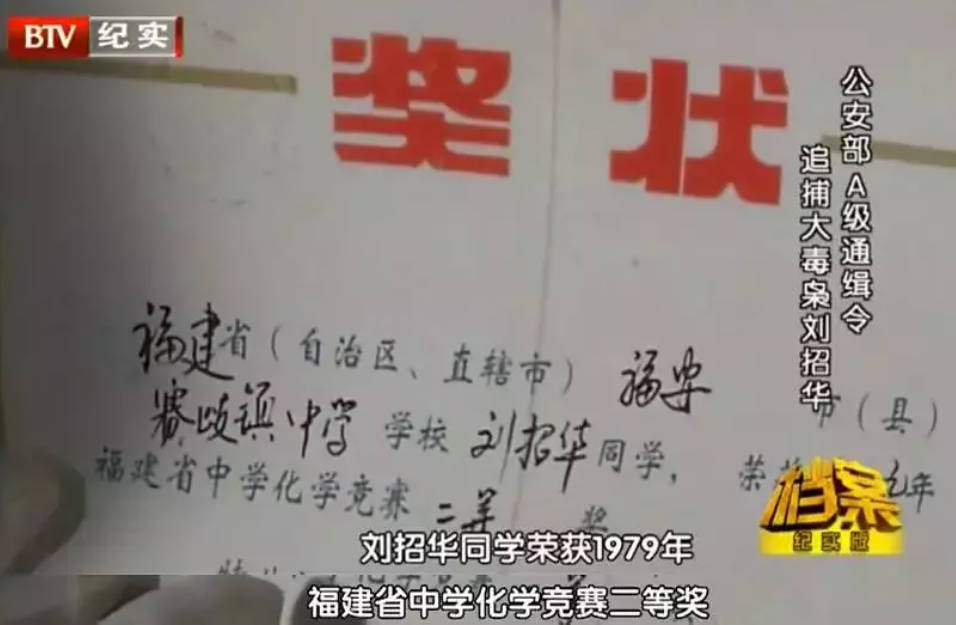 BTV 纪实
奖状
公安部A级通缉令
追捕大毒枭刘招华
福建省（自治区、直辖市）福安市（县）
赛岐镇中学学校刘招华同学，荣
福建省中学化学竞赛二等奖
年
档案
纪实版
刘招华同学荣获1979年
福建省中学化学竞赛二等奖